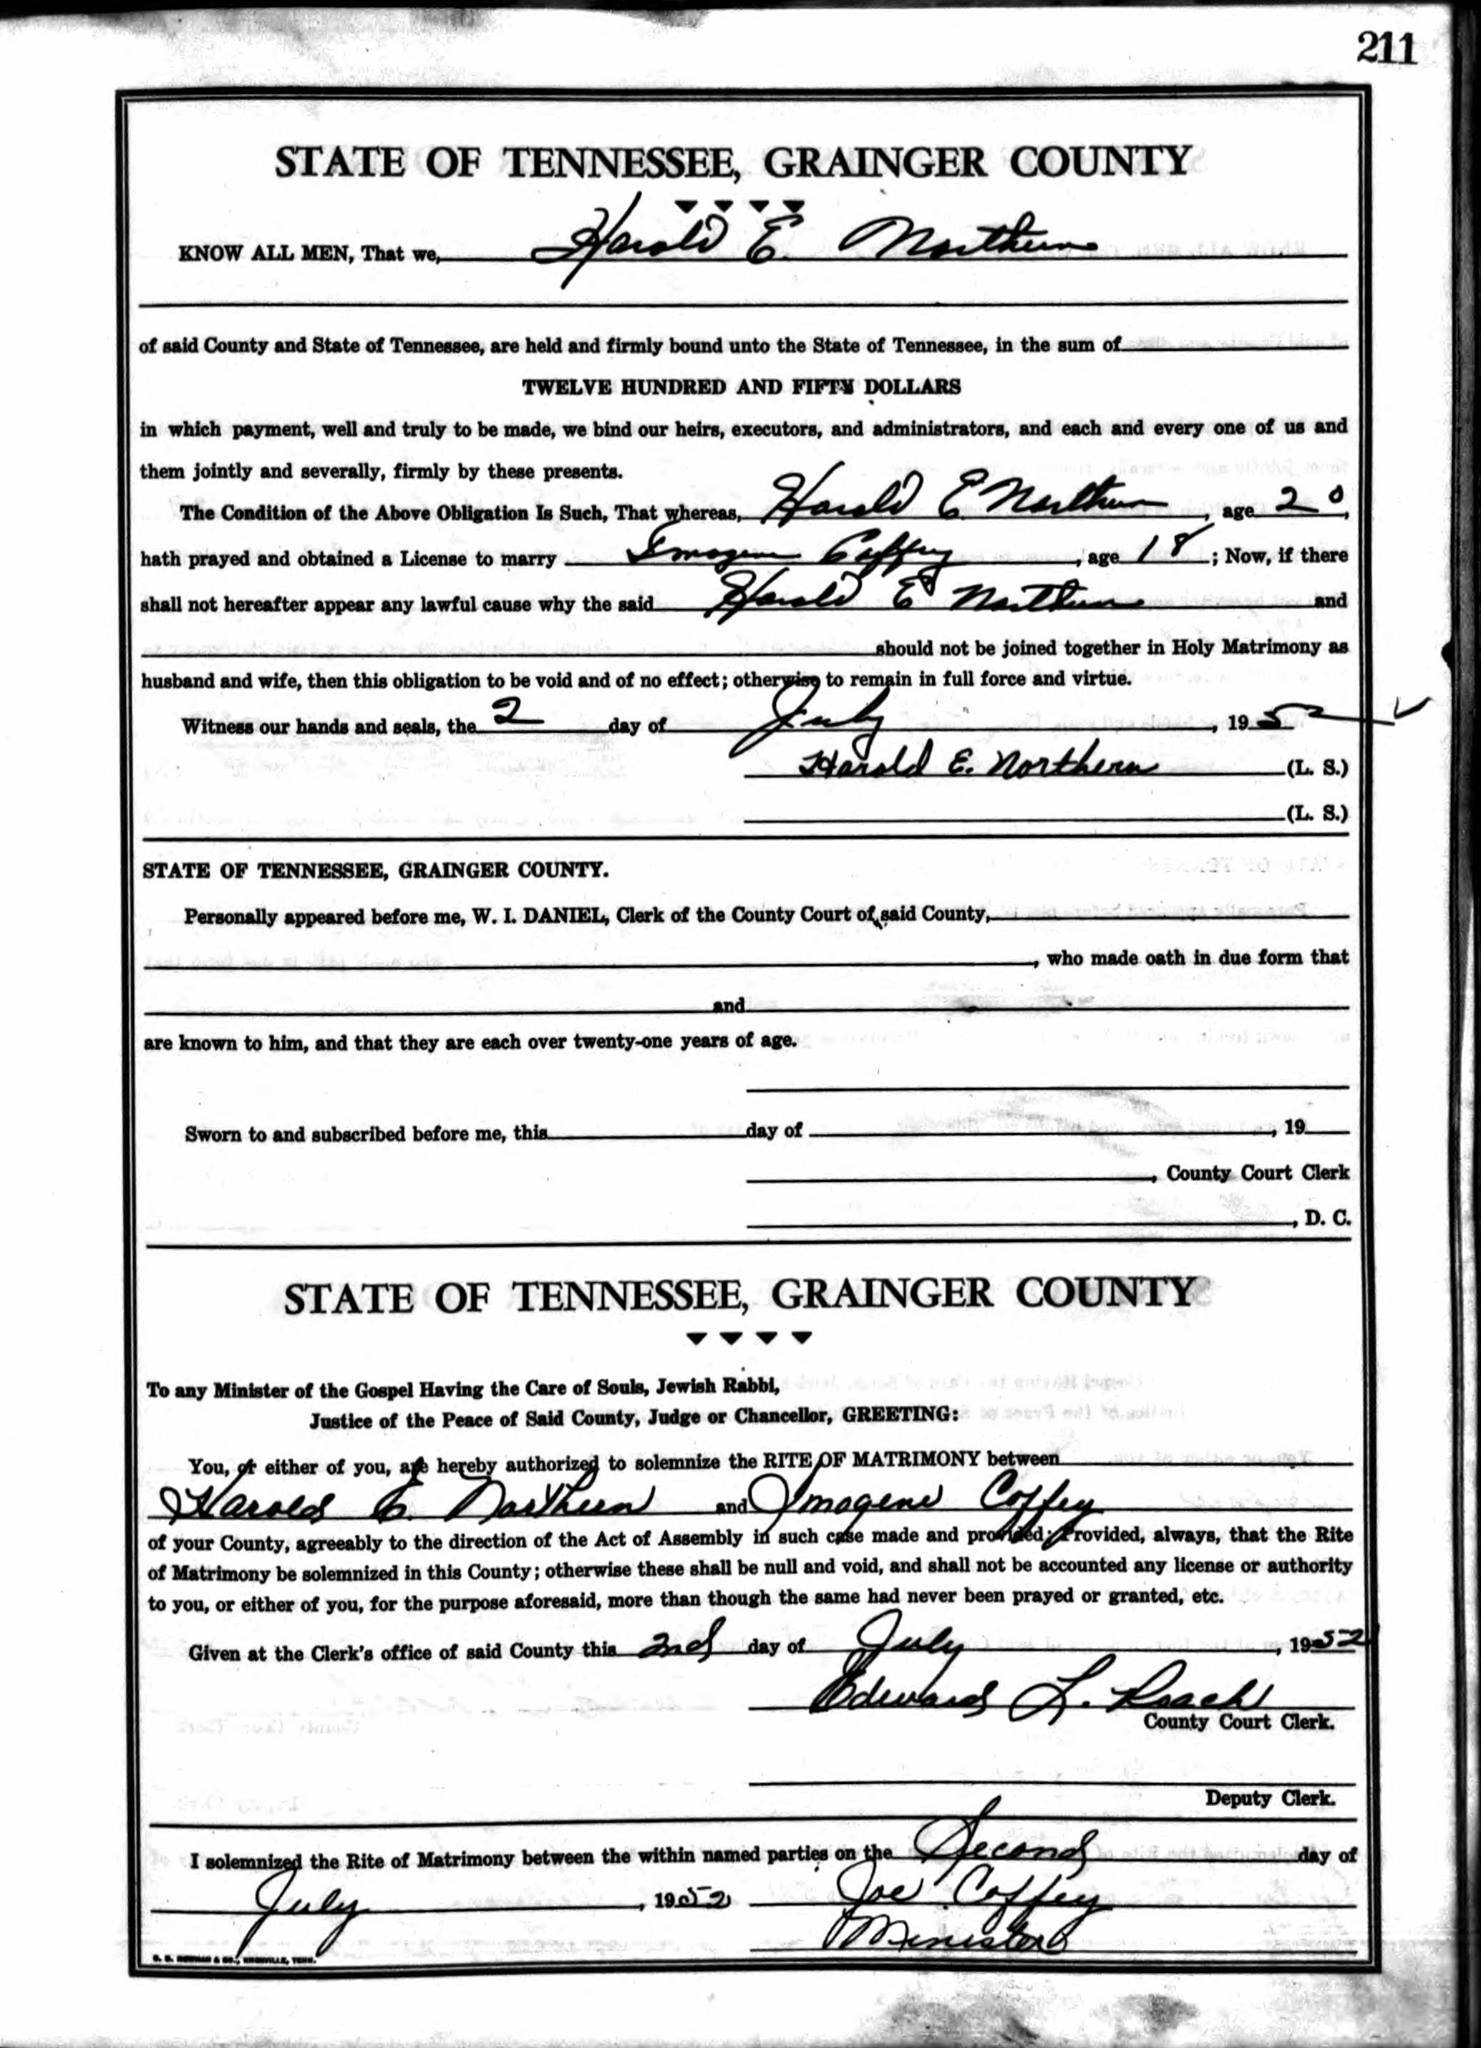 211
STATE OF TENNESSEE, GRAINGER COUNTY
KNOW ALL MEN, That we, Harold E. Northern
of said County and State of Tennessee, are held and firmly bound unto the State of Tennessee, in the sum of
TWELVE HUNDRED AND FIFTY DOLLARS
in which payment, well and truly to be made, we bind our heirs, executors, and administrators, and each and every one of us and
them jointly and severally, firmly by these presents.
The Condition of the Above Obligation Is Such, That whereas, Harold E. Northern, age 20,
hath prayed and obtained a License to marry Imogene Coffey, age 18; Now, if there
shall not hereafter appear any lawful cause why the said Harold E Northern and
should not be joined together in Holy Matrimony as
husband and wife, then this obligation to be void and of no effect; otherwise to remain in full force and virtue.
Witness our hands and seals, the 2 day of July, 1952
Harold E. Northern (L. S.)
(L. S.)
STATE OF TENNESSEE, GRAINGER COUNTY.
Personally appeared before me, W. I. DANIEL, Clerk of the County Court of said County,
, who made oath in due form that
and
are known to him, and that they are each over twenty-one years of age.
Sworn to and subscribed before me, this day of , 19
, County Court Clerk
, D. C.
STATE OF TENNESSEE, GRAINGER COUNTY
To any Minister of the Gospel Having the Care of Souls, Jewish Rabbi,
Justice of the Peace of Said County, Judge or Chancellor, GREETING:
You, or either of you, are hereby authorized to solemnize the RITE OF MATRIMONY between
Harold E. Northern and Imogene Coffey
of your County, agreeably to the direction of the Act of Assembly in such case made and provided; Provided, always, that the Rite
of Matrimony be solemnized in this County; otherwise these shall be null and void, and shall not be accounted any license or authority
to you, or either of you, for the purpose aforesaid, more than though the same had never been prayed or granted, etc.
Given at the Clerk's office of said County this 2nd day of July, 1952
Edward L. Roach
County Court Clerk.
Deputy Clerk.
I solemnized the Rite of Matrimony between the within named parties on the Second day of
July, 1952 Joe Coffey
Minister
& CO., KNOXVILLE, TENN.